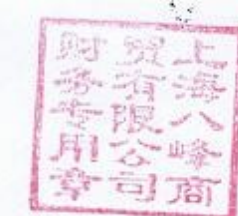 上海八峰商
贸有限公司
财务专用章